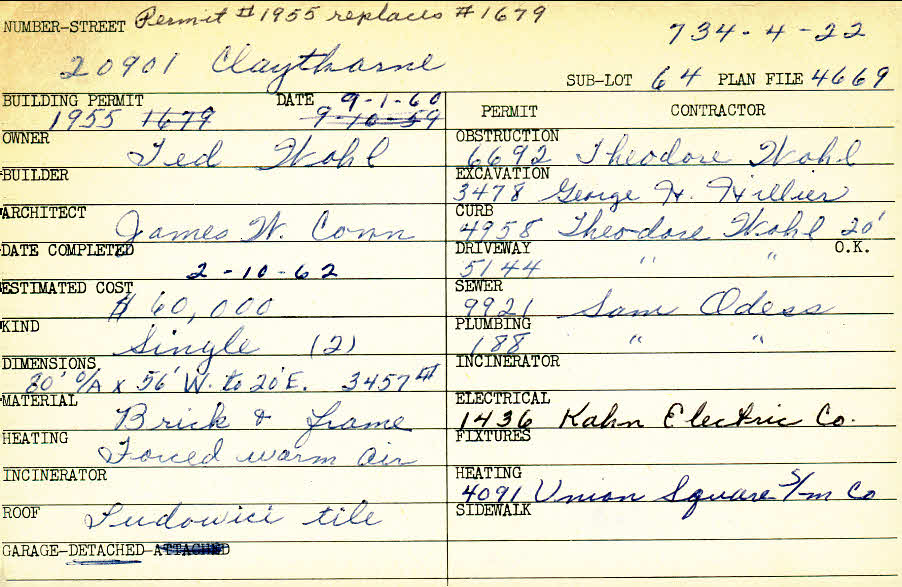 Permit #1955 replaces #1679
NUMBER-STREET
734-4-22
20901 Claythorne
SUB-LOT 64 PLAN FILE 4669
BUILDING PERMIT DATE 9-1-60
1955 1679 9-10-59
PERMIT CONTRACTOR
OWNER Ted Wohl
OBSTRUCTION
6692 Theodore Wohl
BUILDER
EXCAVATION
3478 George H. Hillier
ARCHITECT James W. Conn
CURB
4958 Theodore Wohl 20'
DATE COMPLETED
2-10-62
DRIVEWAY O.K.
5144 " "
ESTIMATED COST
$60,000
SEWER
9921 Sam Odess
KIND
Single (2)
PLUMBING
188 " "
DIMENSIONS
80' O/A x 56' W. to 20' E. 3457 #
INCINERATOR
MATERIAL
Brick & frame
ELECTRICAL
1436 Kahn Electric Co.
HEATING
Forced warm air
FIXTURES
INCINERATOR
HEATING
4091 Union Square S/m Co
ROOF Ludowici tile
SIDEWALK
GARAGE-DETACHED-ATTACHED